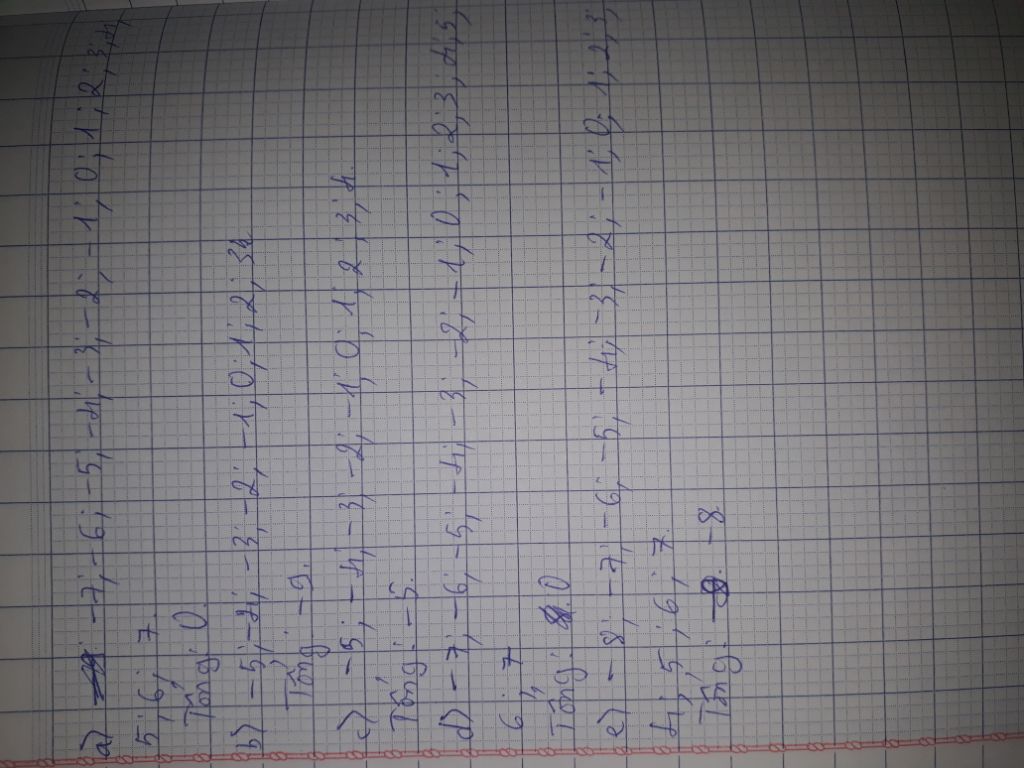 a) -7; -6; -5; -4; -3; -2; -1; 0; 1; 2; 3; 4;
5; 6; 7.
Tổng: 0.
b) -5; -4; -3; -2; -1; 0; 1; 2; 3
Tổng: -9.
c) -5; -4; -3; -2; -1; 0; 1; 2; 3; 4.
Tổng: -5.
d) -7; -6; -5; -4; -3; -2; -1; 0; 1; 2; 3; 4; 5;
6; 7
Tổng: 0
e) -8; -7; -6; -5; -4; -3; -2; -1; 0; 1; 2; 3;
4; 5; 6; 7.
Tổng: -8